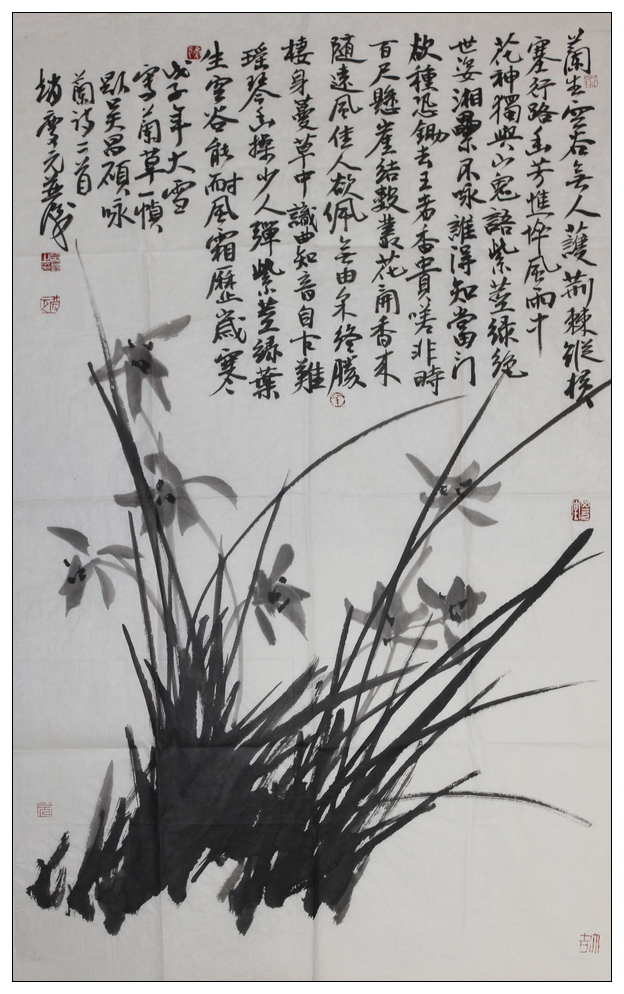 蘭生空谷無人護荊棘縱橫
塞行路幽芳憔悴風雨中
花神獨與山鬼語紫莖綠絕
世姿湘纍不咏誰得知當門
欲種恐鋤去王者香貴嗟非時
百尺懸崖結數叢花開香來
隨遠風佳人欲佩無由采終勝
棲身蔓草中識曲知音自古難
瑶琴不操少人彈紫莖綠葉
生空谷能耐風霜歷歲寒
戊子年大雪
寫蘭草一幀
題吳昌碩咏
蘭詩二首